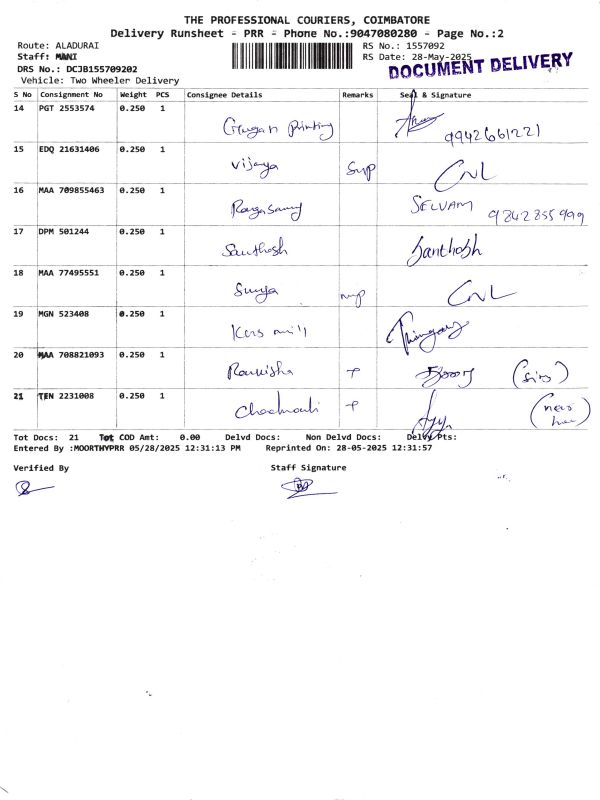 THE PROFESSIONAL COURIERS, COIMBATORE
Delivery Runsheet - PRR - Phone No.:9047080280 - Page No.:2
Route: ALADURAI RS No.: 1557092
Staff: MANI RS Date: 28-May-2025
DRS No.: DCJB155709202
DOCUMENT DELIVERY
Vehicle: Two Wheeler Delivery
S No Consignment No Weight PCS Consignee Details Remarks Seal & Signature
14 PGT 2553574 0.250 1 printing 9942661221
15 EDQ 21631406 0.250 1 Vijaya CNL
16 MAA 709855463 0.250 1 Rangasamy SELVAM 9842855999
17 DPM 501244 0.250 1 Santhosh Santhosh
18 MAA 77495551 0.250 1 Surya CNL
19 MGN 523408 0.250 1 mill
20 MAA 708821093 0.250 1
21 TEN 2231008 0.250 1
Tot Docs: 21 Tot COD Amt: 0.00 Delvd Docs: Non Delvd Docs: Delvy Pts:
Entered By :MOORTHYPRR 05/28/2025 12:31:13 PM Reprinted On: 28-05-2025 12:31:57
Verified By Staff Signature